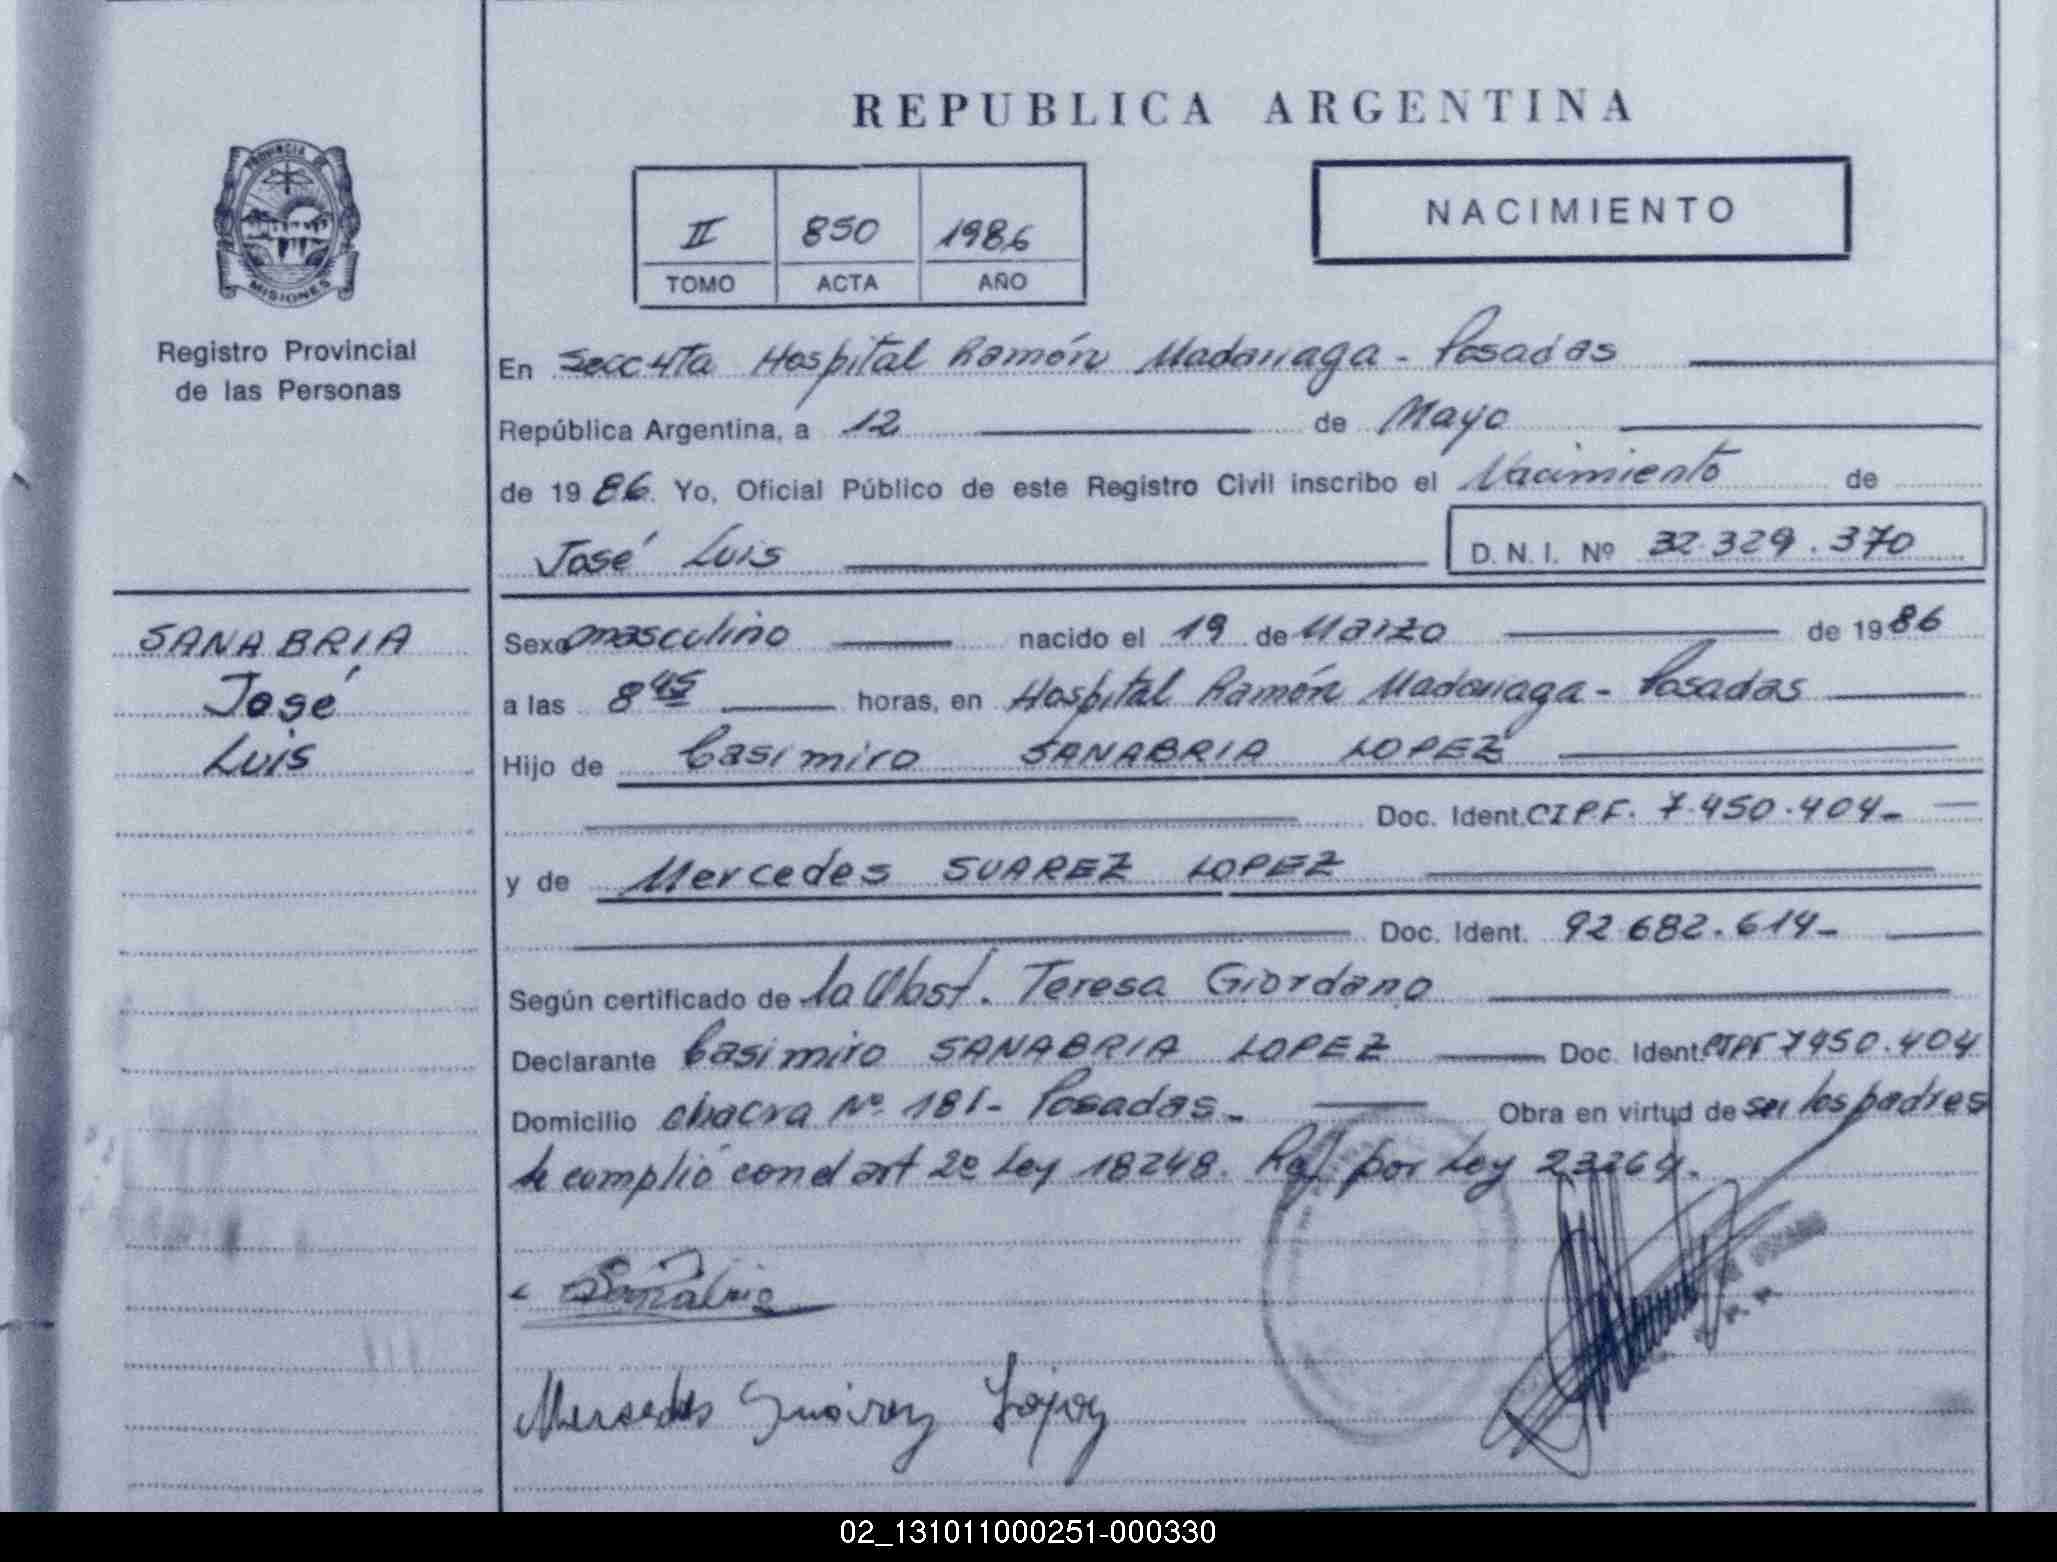 REPUBLICA ARGENTINA
PROVINCIA DE
MISIONES
Registro Provincial
de las Personas
II 850 1986
TOMO ACTA AÑO
NACIMIENTO
En Secc 4ta Hospital Ramón Madariaga - Posadas
República Argentina, a 12 de Mayo
de 1986. Yo, Oficial Público de este Registro Civil inscribo el Nacimiento de
José Luis D. N. I. Nº 32.329.370
SANABRIA
José
Luis
Sexo masculino nacido el 19 de Marzo de 1986
a las 8 45 horas, en Hospital Ramón Madariaga - Posadas
Hijo de Casimiro SANABRIA LOPEZ
Doc. Ident. CIPF. 7.450.404-
y de Mercedes SUAREZ LOPEZ
Doc. Ident. 92.682.614-
Según certificado de la Obst. Teresa Giordano
Declarante Casimiro SANABRIA LOPEZ Doc. Ident. CIPF 7450.404
Domicilio chacra Nº 181- Posadas- Obra en virtud de ser los padres
Se cumplió con el art 2º Ley 18248. Ref por Ley 23264.
Sanabria
Mercedes Suárez López
02_131011000251-000330